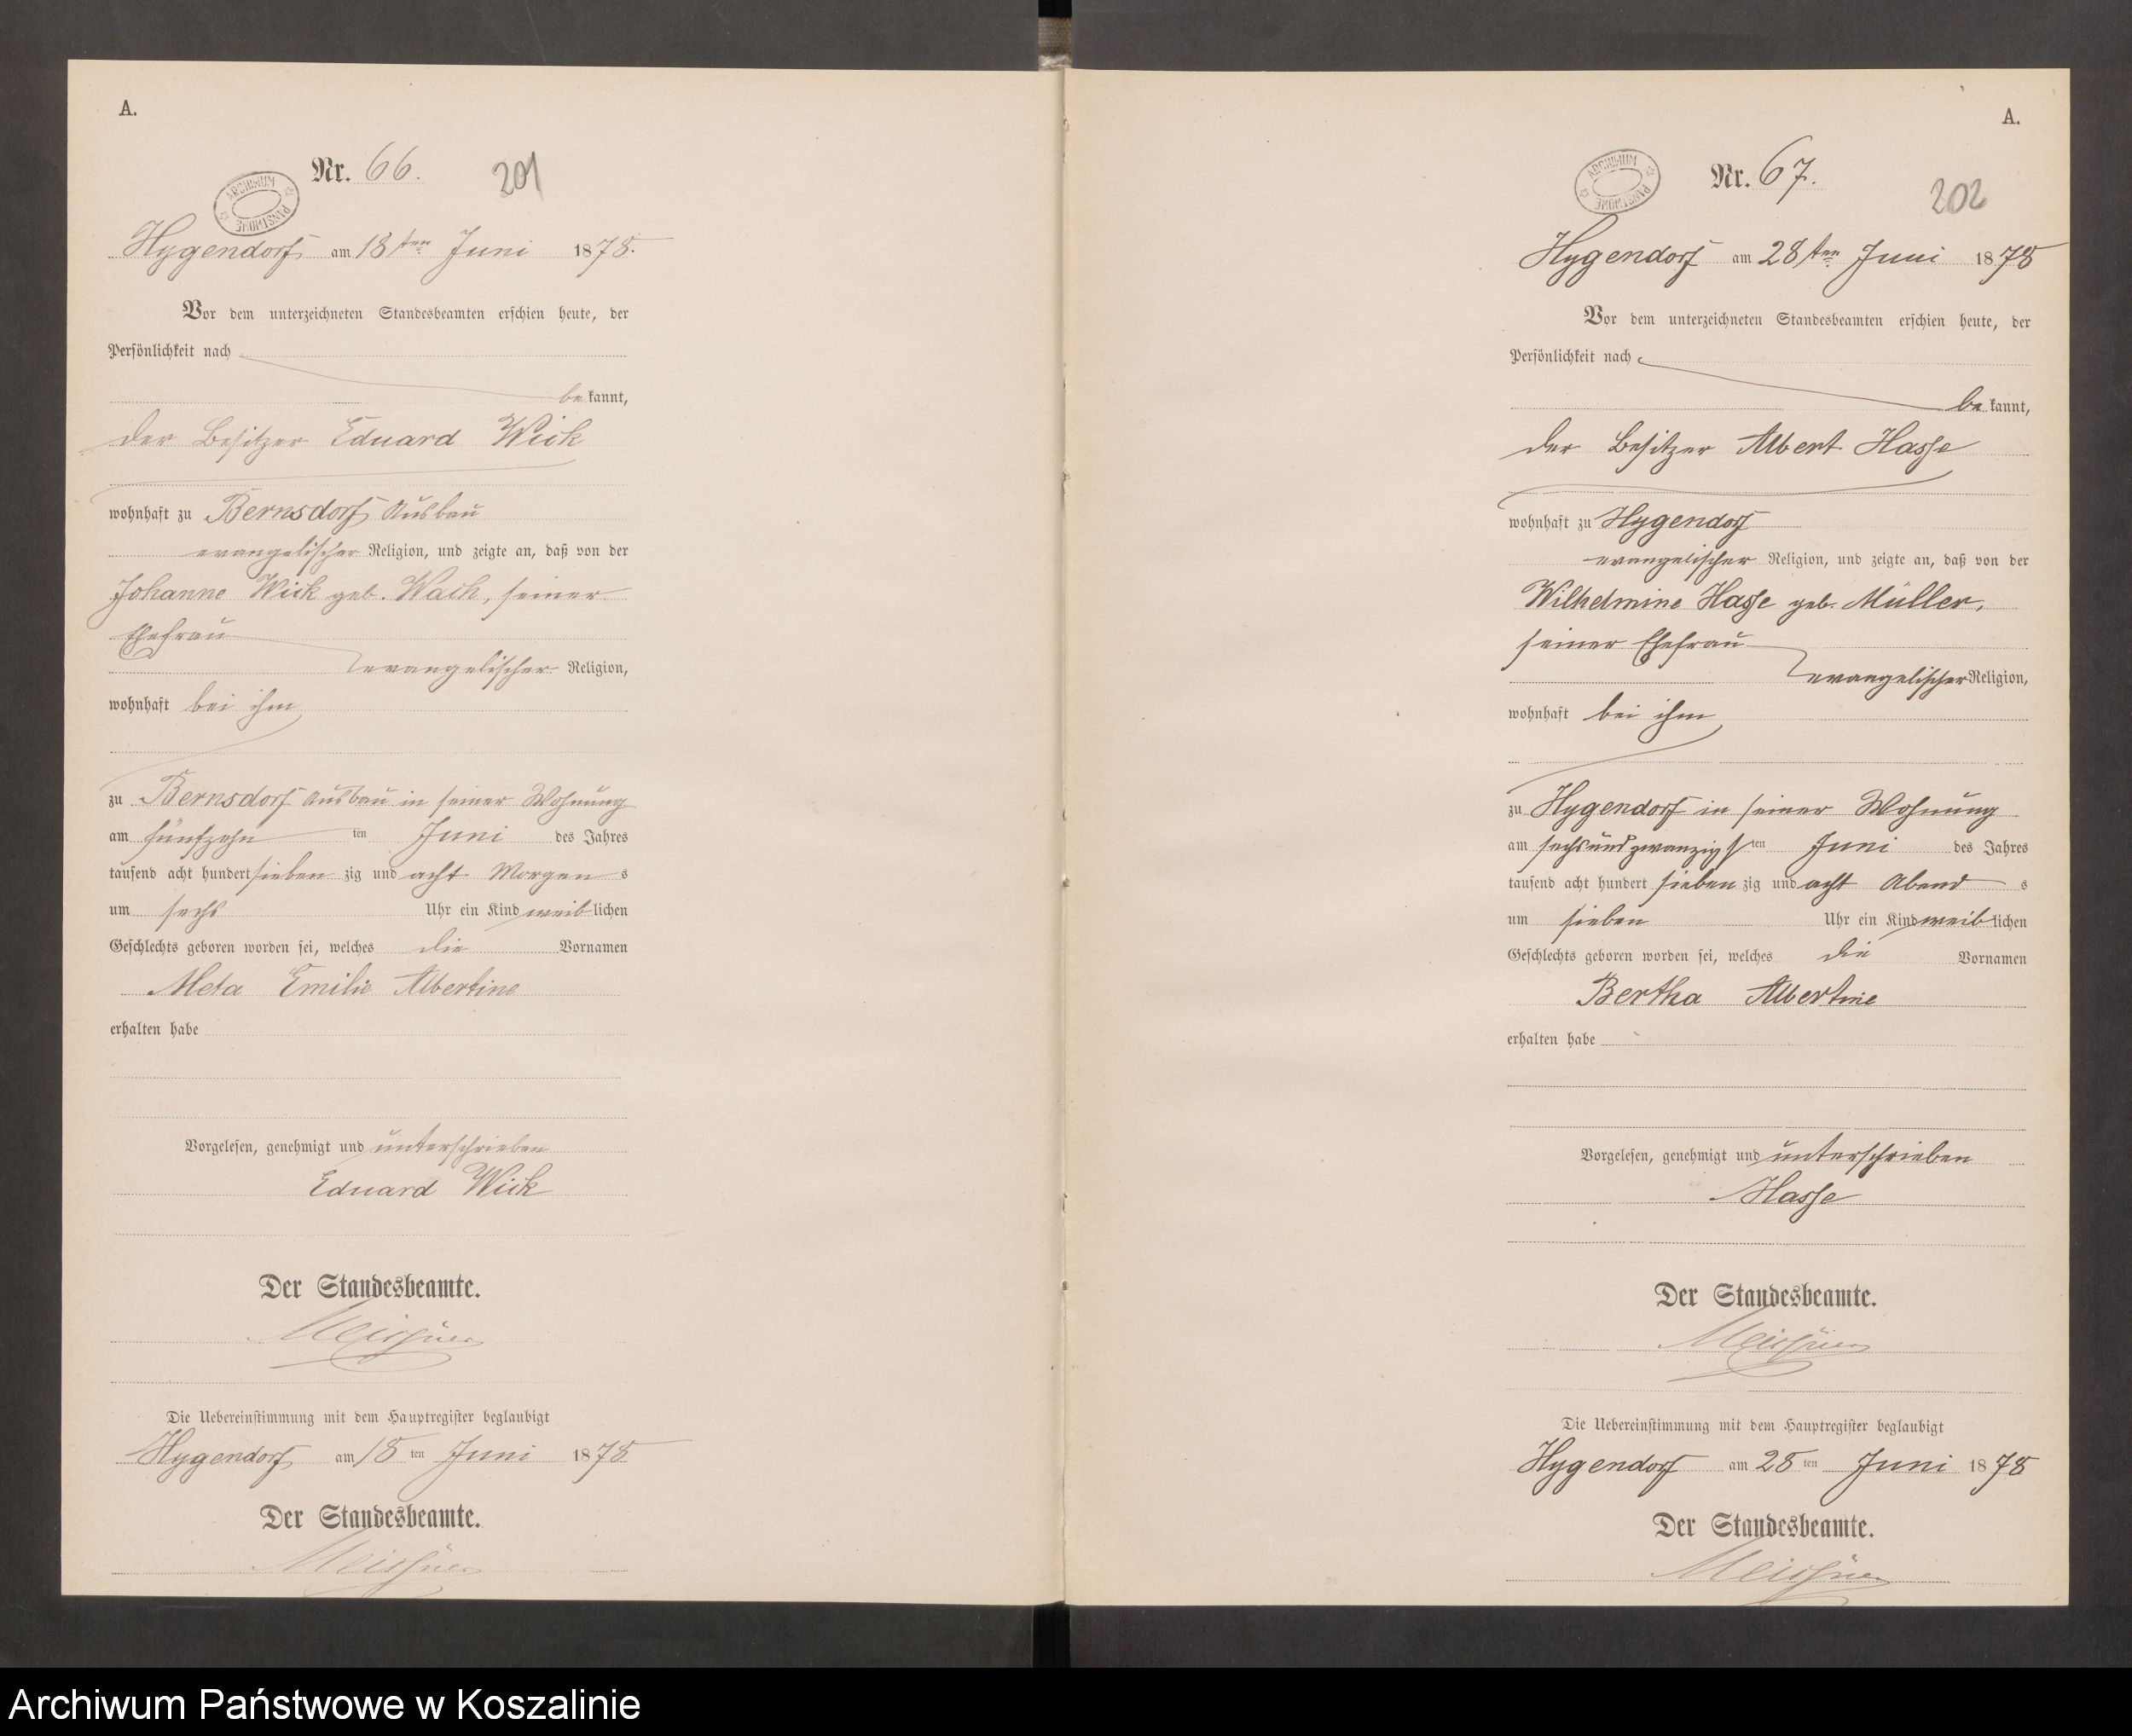 A.
Nr. 66.
201
ARCHIWUM PAŃSTWOWE
Hygendorf am 18ten Juni 1878.
Vor dem unterzeichneten Standesbeamten erschien heute, der
Persönlichkeit nach
bekannt,
der Besitzer Eduard Wick
wohnhaft zu Bernsdorf Ausbau
evangelischer Religion, und zeigte an, daß von der
Johanne Wick geb. Wach, seiner
Ehefrau
evangelischer Religion,
wohnhaft bei ihm
zu Bernsdorf Ausbau in seiner Wohnung
am fünfzehn ten Juni des Jahres
tausend acht hundert sieben zig und acht Morgens
um sechs Uhr ein Kind weiblichen
Geschlechts geboren worden sei, welches die Vornamen
Meta Emilie Albertine
erhalten habe
Vorgelesen, genehmigt und unterschrieben
Eduard Wick
Der Standesbeamte.
Die Uebereinstimmung mit dem Hauptregister beglaubigt
Hygendorf am 18 ten Juni 1878
Der Standesbeamte.
A.
Nr. 67.
202
ARCHIWUM PAŃSTWOWE
Hygendorf am 28ten Juni 1878
Vor dem unterzeichneten Standesbeamten erschien heute, der
Persönlichkeit nach
bekannt,
der Besitzer Albert Hasse
wohnhaft zu Hygendorf
evangelischer Religion, und zeigte an, daß von der
Wilhelmine Hasse geb. Müller,
seiner Ehefrau
evangelischer Religion,
wohnhaft bei ihm
zu Hygendorf in seiner Wohnung
am sechsundzwanzigsten Juni des Jahres
tausend acht hundert sieben zig und acht Abends
um sieben Uhr ein Kind weiblichen
Geschlechts geboren worden sei, welches die Vornamen
Bertha Albertine
erhalten habe
Vorgelesen, genehmigt und unterschrieben
Hasse
Der Standesbeamte.
Die Uebereinstimmung mit dem Hauptregister beglaubigt
Hygendorf am 28 ten Juni 1878
Der Standesbeamte.
Archiwum Państwowe w Koszalinie